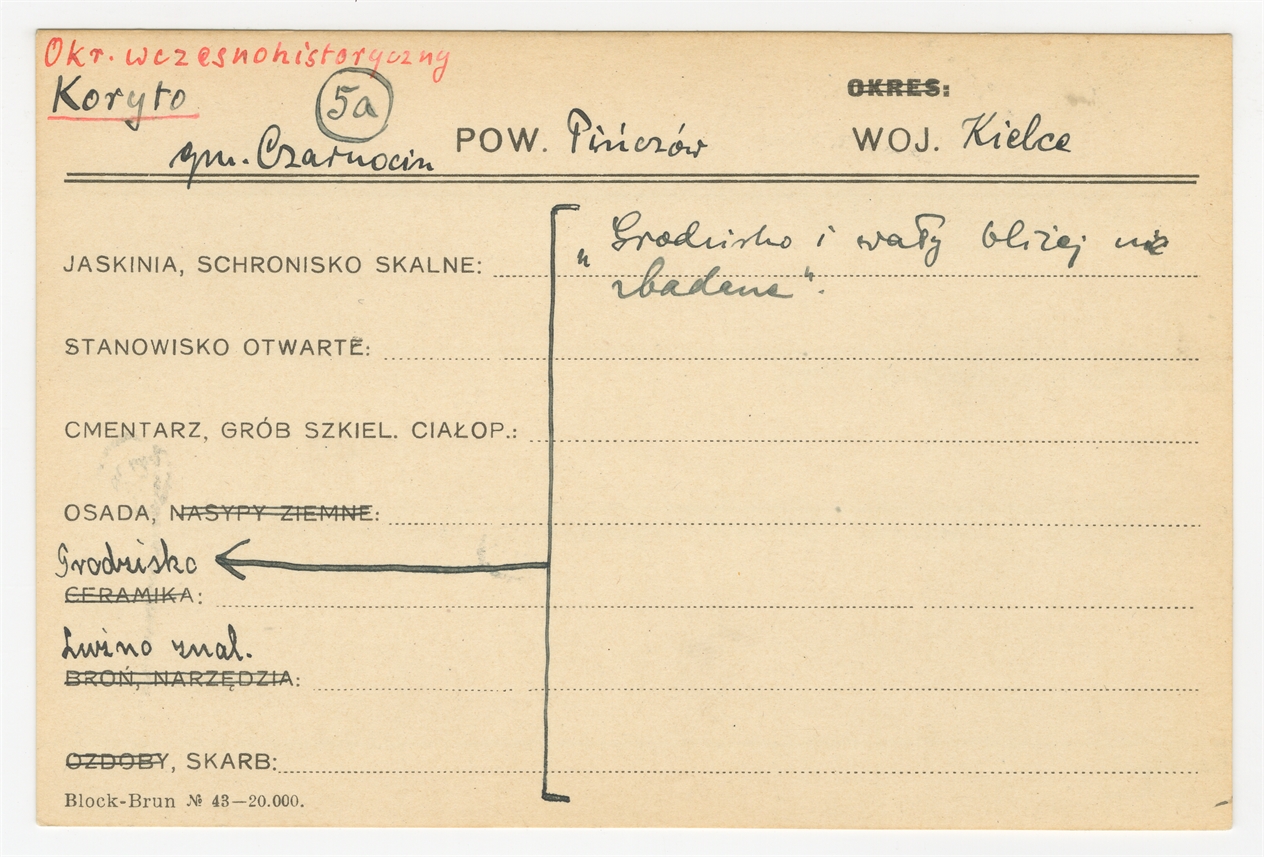 Okr. wczesnohistoryczny
Koryto 5a OKRES:
gm. Czarnocin POW. Pińczów WOJ. Kielce
„Grodzisko i wały bliżej nie
JASKINIA, SCHRONISKO SKALNE:
zbadane".
STANOWISKO OTWARTE:
CMENTARZ, GRÓB SZKIEL. CIAŁOP.:
OSADA, NASYPY ZIEMNE:
Grodzisko
CERAMIKA:
Luźno znal.
BROŃ, NARZĘDZIA:
OZDOBY, SKARB:
Block-Brun № 43—20.000.